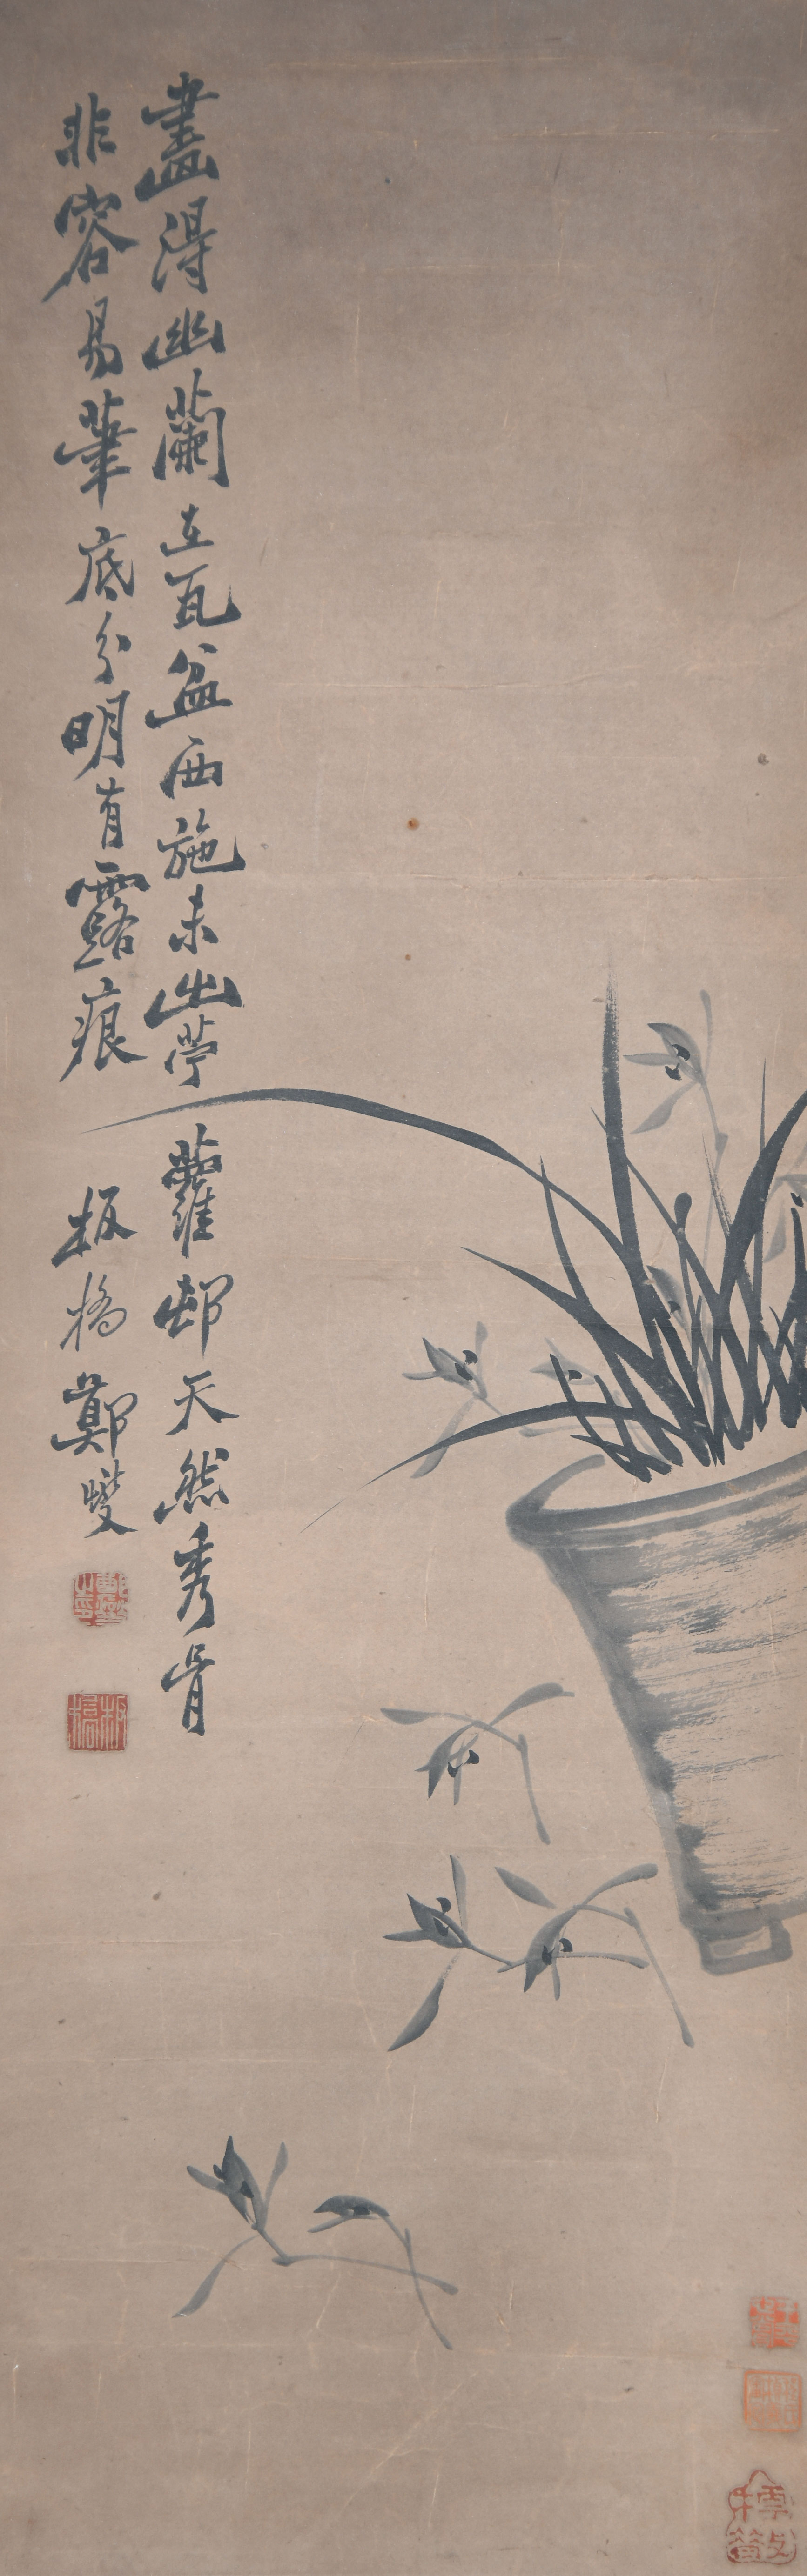 畫得幽蘭在瓦盆西施未出苧蘿邨天然秀骨
非容易筆底分明有露痕
板橋鄭燮
鄭燮之印
板橋